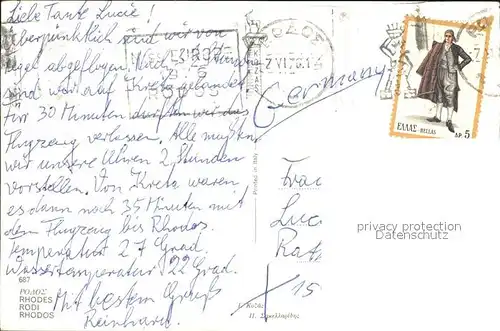 Liebe Tante Lucie!
Überpünktlich sind wir von
abgeflogen. Nach 3 Stunden
sind wir auf Kreta gelandet
für 30 Minuten durften wir das
Flugzeug verlassen. Alle mußten
wir unsere Uhren 2 Stunden
vorstellen. Von Kreta waren
es dann noch 35 Minuten mit
dem Flugzeug bis Rhodos.
Temperatur 27 Grad.
Wassertemperatur 22 Grad.
Mit bestem Gruß
Reinhard
687
ΡΟΔΟΣ
RHODES
RODI
RHODOS
Printed in Italy
Germany
ΕΛΛΑΣ HELLAS ΔΡ 5
Frau
Luc
Rat
15
privacy protection
Datenschutz